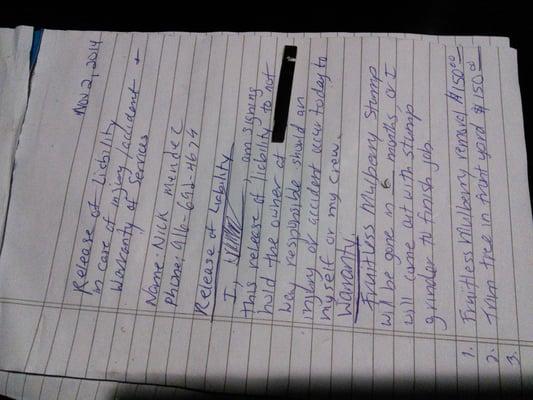 Nov 2, 2014
Release of Liability
in case of injury/accident +
warranty of services
Name: Nick Mendez
Phone: 916-692-4674
Release of Liability
I, am signing
this release of liability to not
hold the owner of
Way responsible should an
injury or accident occur today to
myself or my crew.
Warranty
Fruitless Mulberry Stump
will be gone in 6 months or I
will come out with stump
grinder to finish job
1. Fruitless Mulberry removal $150.00
2. Trim tree in front yard $150.00
3.